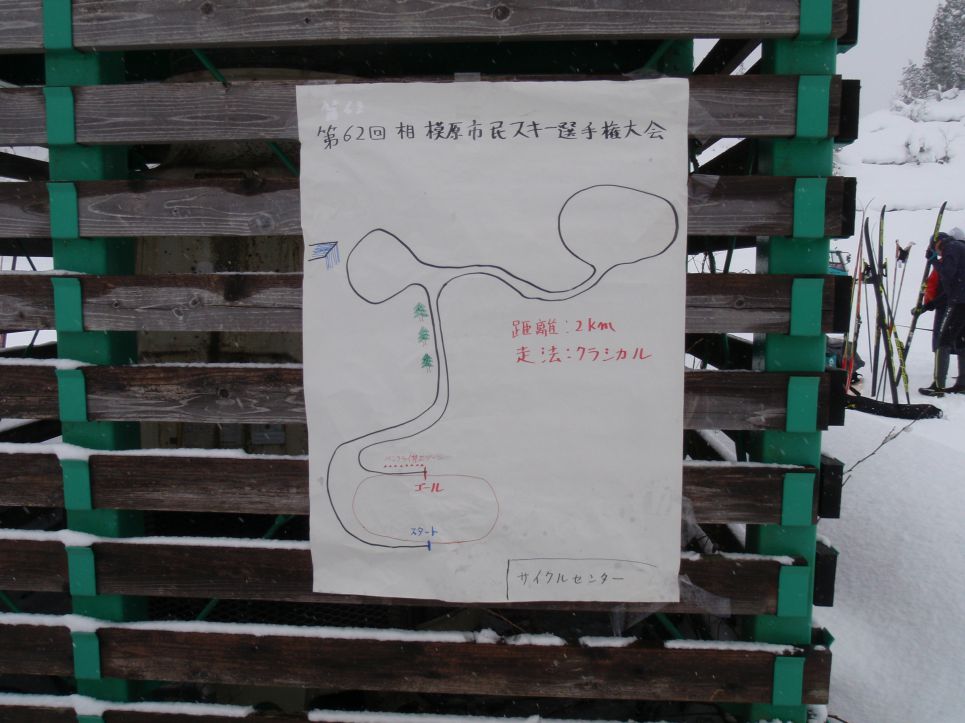 第62回 相模原市民スキー選手権大会
距離:2km
走法:クラシカル
ゴール
スタート
サイクルセンター